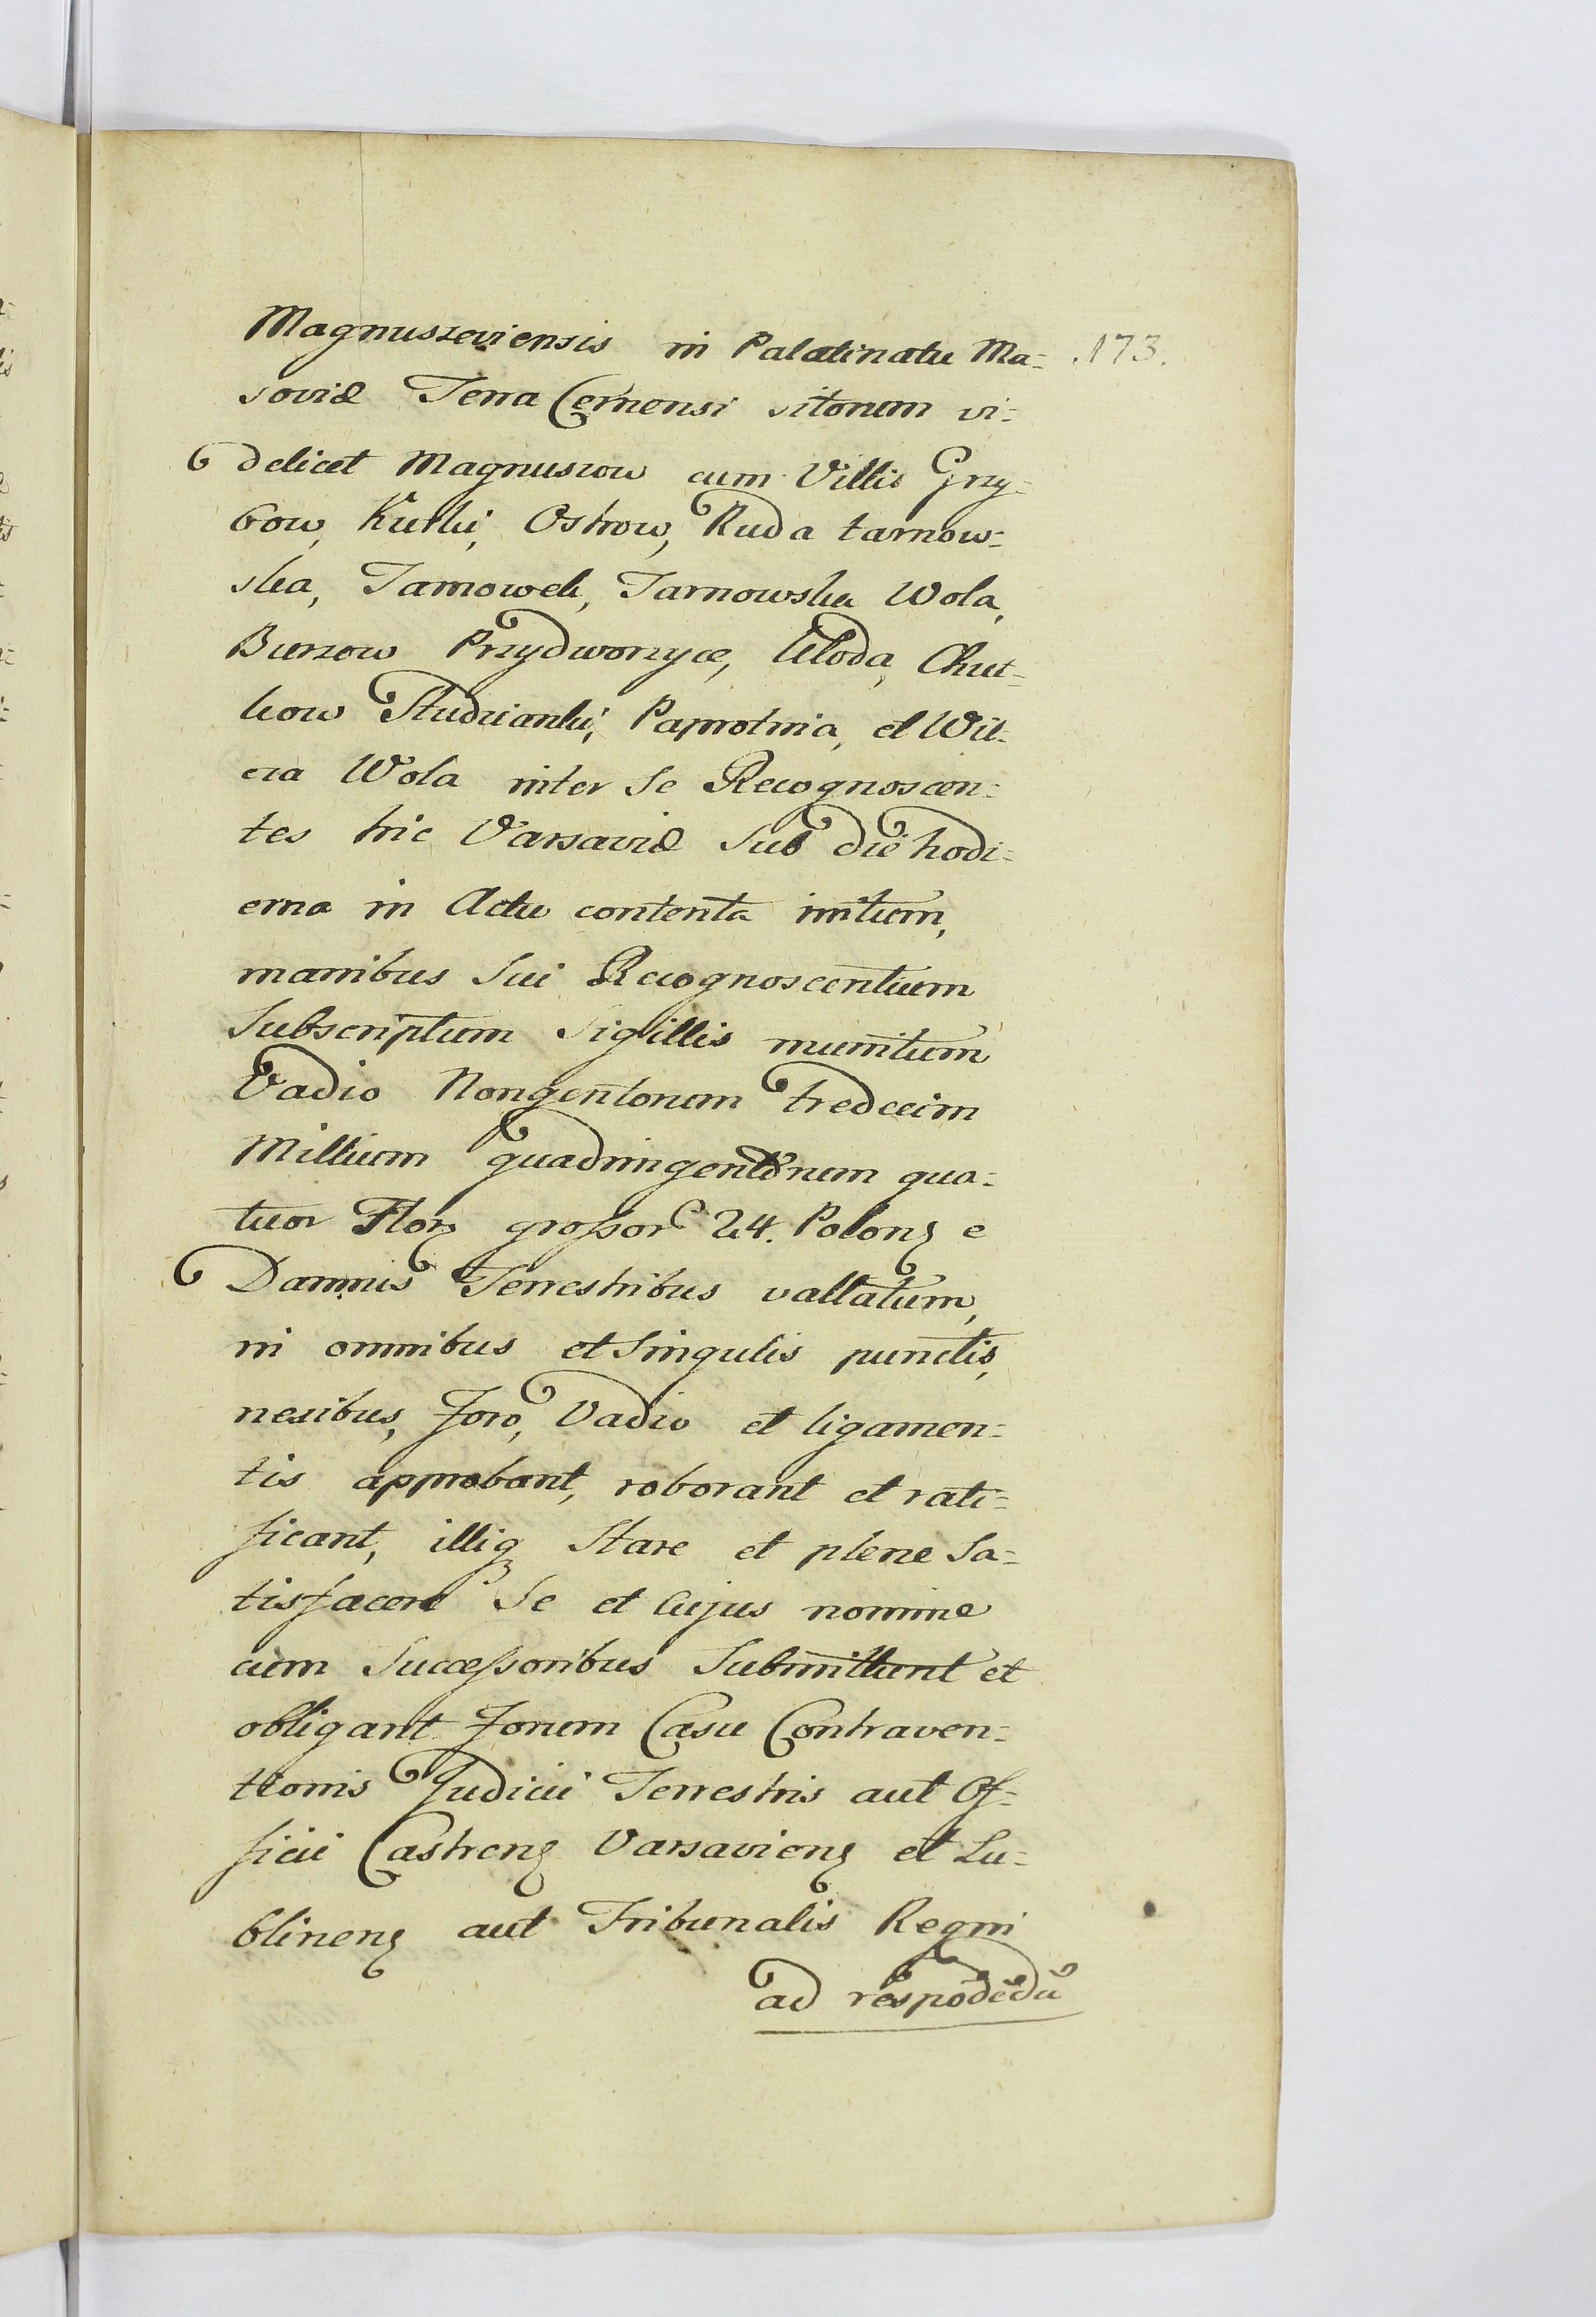 Magnuszeviensis in Palatinatu Ma= .173.
soviæ Terra Cernensi sitorum vi=
delicet Magnuszow cum Villis Grzy=
bow, Kurki, Ostrow, Ruda tarnow=
ska, Tarnowek, Tarnowska Wola,
Burzow Przydworzyce, Kłoda, Chut=
kow Studzianki, Paprotnia, et Wil=
cza Wola inter se Recognoscen=
tes hic Varsaviæ Sub die hodi=
erna in Actu contenta initum,
manibus Sui Recognoscentium
Subscriptum Sigillis munitum
Vadio Nongentorum tredecim
Millium quadringentorum qua=
tuor Flor grossor 24. Polon e
Damnis Terrestribus vallatum,
in omnibus et Singulis punctis,
nexibus, Foro, Vadio et ligamen=
tis approbant, roborant et rati=
ficant, illiq Stare et plene Sa=
tisfacere Se et Cujus nomine
cum Successoribus Submittunt et
obligant Forum Casu Contraven=
tionis Judicii Terrestris aut Of=
ficii Castren Varsavien et Lu=
blinen aut Tribunalis Regni
ad respōdēdū